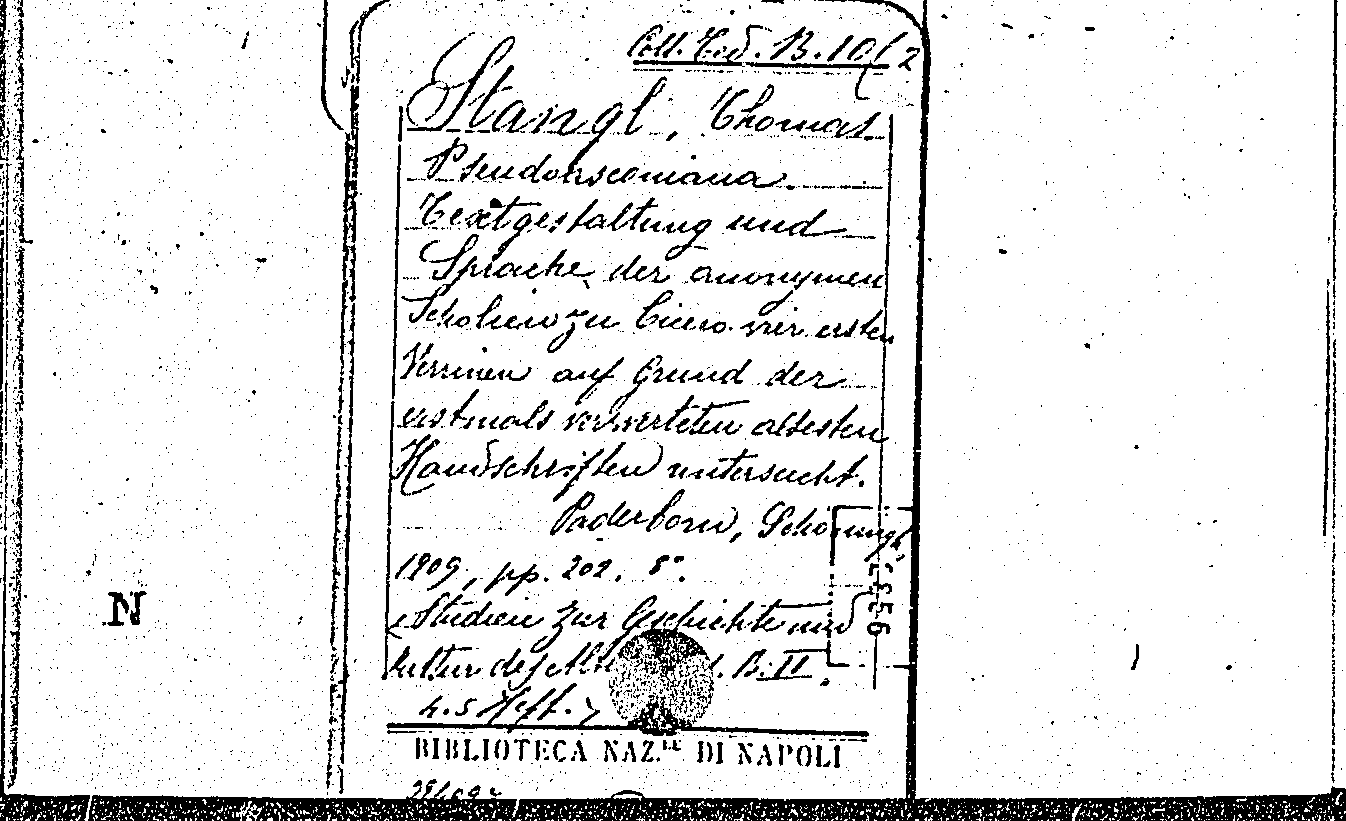 Coll. Ted. B. 10(2
Stangl, Thomas
Pseudoasconiana.
Textgestaltung und
Sprache der anonymen
Scholien zu Cicero vier ersten
Verrinen auf Grund der
erstmals verwerteten ältesten
Handschriften untersucht.
Paderborn, Schöningh,
1909, pp. 202. 8°.
(Studien zur Geschichte und
Kultur des B. II.
4.5 Heft.)
BIBLIOTECA NAZ.LE DI NAPOLI
N